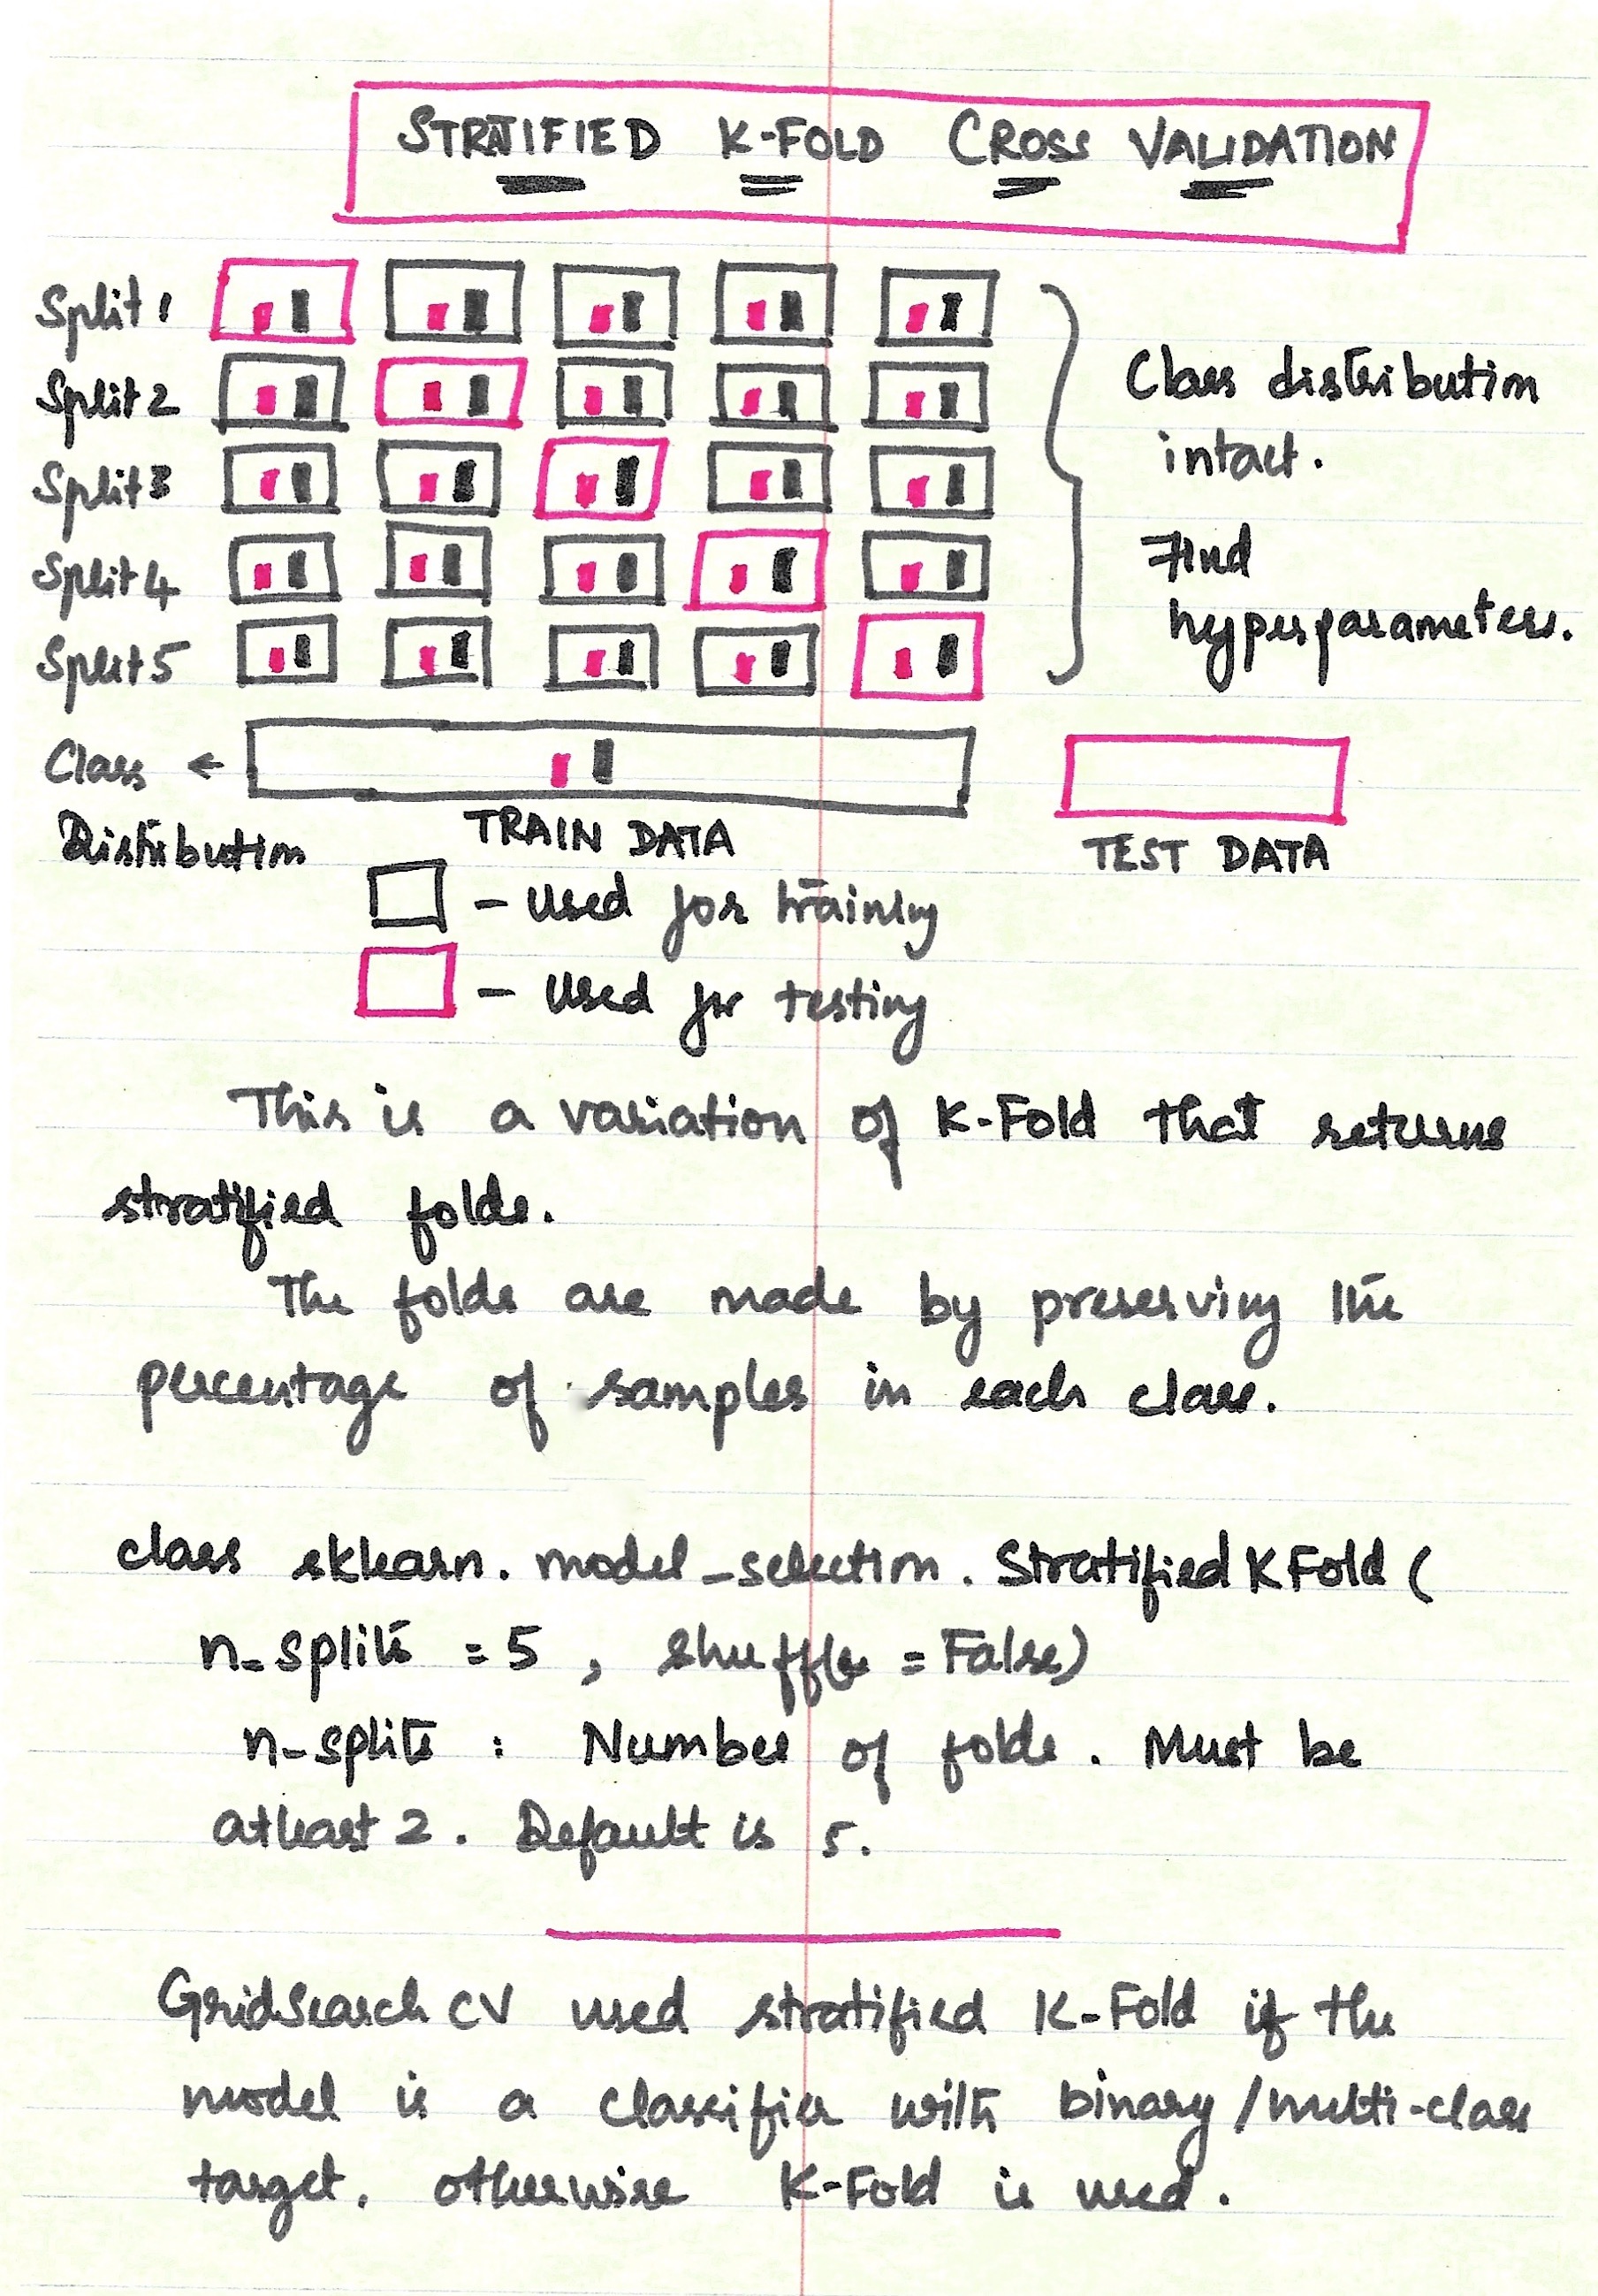 STRATIFIED K-FOLD CROSS VALIDATION
Split 1
Split 2
Split 3
Split 4
Split 5
Class distribution
intact.
Find
hyperparameters.
Class ←
Distribution
TRAIN DATA
TEST DATA
- Used for training
- Used for testing
This is a variation of K-Fold that returns
stratified folds.
The folds are made by preserving the
percentage of samples in each class.
class sklearn. model_selection. StratifiedKFold (
n_splits = 5 , shuffle = False)
n-splits : Number of folds. Must be
atleast 2. Default is 5.
GridSearchCV used stratified K-Fold if the
model is a classifier with binary/multi-class
target. otherwise K-Fold is used.